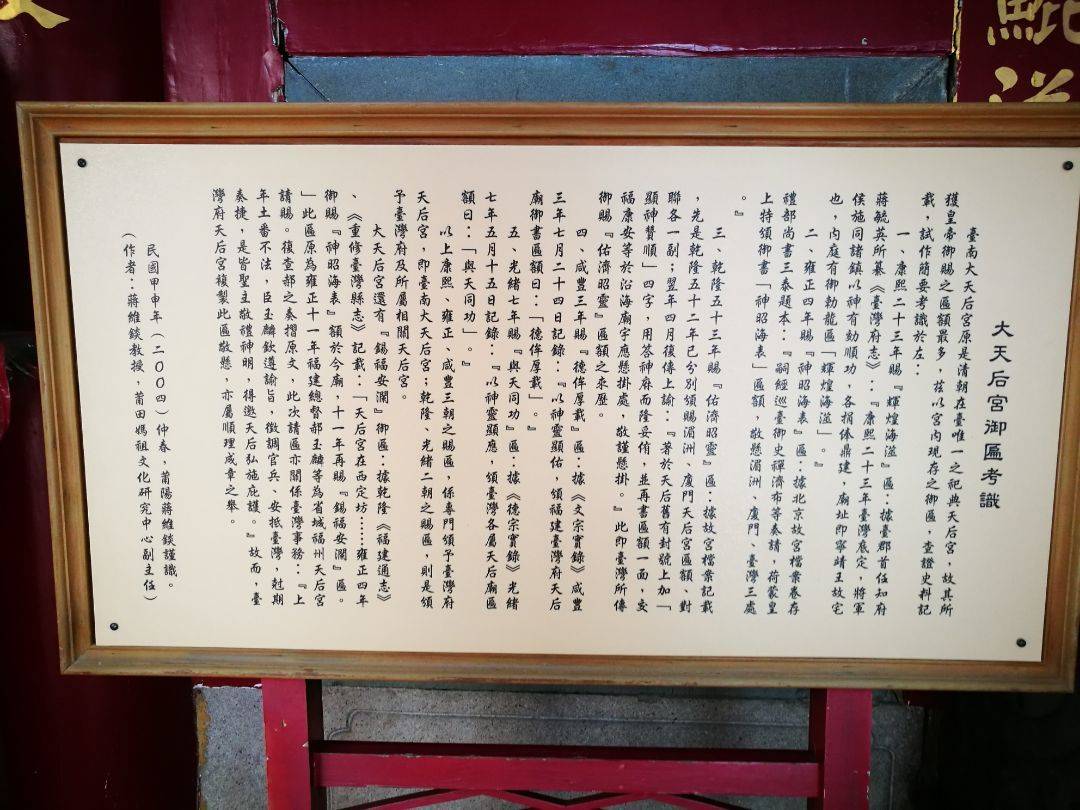 大天后宮御匾考識
臺南大天后宮原是清朝在臺唯一之祀典天后宮,故其所
獲皇帝御賜之匾額最多,茲以宮內現存之御匾,查證史料記
載,試作簡要考識於左:
一、康熙二十三年賜『輝煌海澨』匾:據臺郡首任知府
蔣毓英所纂《臺灣府志》:『康熙二十三年臺灣底定,將軍
侯施同諸鎮以神有効順功,各捐俸鼎建,廟址即寧靖王故宅
也,內庭有御勅龍匾「輝煌海澨」。』
二、雍正四年賜『神昭海表』匾:據北京故宮檔案卷存
禮部尚書三泰題本:『嗣經巡臺御史禪濟布等奏請,荷蒙皇
上特頒御書「神昭海表」匾額,敬懸湄洲、廈門、臺灣三處
。』
三、乾隆五十三年賜『佑濟昭靈』匾:據故宮檔案記載
,先是乾隆五十二年已分別頒賜湄洲、廈門天后宮匾額、對
聯各一副;翌年四月復傳上諭:『著於天后舊有封號上加「
顯神贊順」四字,用答神庥而隆妥侑,並再書匾額一面,交
福康安等於沿海廟宇應懸掛處,敬謹懸掛。』此即臺灣所傳
御賜『佑濟昭靈』匾額之來歷。
四、咸豐三年賜『德侔厚載』匾:據《文宗實錄》咸豐
三年七月二十四日記錄:『以神靈顯佑,頒福建臺灣府天后
廟御書匾額曰:「德侔厚載」。』
五、光緒七年賜『與天同功』匾:據《德宗實錄》光緒
七年五月十五日記錄:『以神靈顯應,頒臺灣各屬天后廟匾
額曰:「與天同功」。』
以上康熙、雍正、咸豐三朝之賜匾,係專門頒予臺灣府
天后宮,即臺南大天后宮;乾隆、光緒二朝之賜匾,則是頒
予臺灣府及所屬相關天后宮。
大天后宮還有『錫福安瀾』御匾:據乾隆《福建通志》
、《重修臺灣縣志》記載:「天后宮在西定坊⋯⋯雍正四年
御賜『神昭海表』額於今廟,十一年再賜『錫福安瀾』匾。
」此匾原為雍正十一年福建總督郝玉麟等為省城福州天后宮
請賜。復查郝之奏摺原文,此次請匾亦關係臺灣事務:『上
年土番不法,臣玉麟欽遵諭旨,徵調官兵、安抵臺灣,尅期
奏捷,是皆聖主敬禮神明,得邀天后弘施庇護。』故而,臺
灣府天后宮複製此匾敬懸,亦屬順理成章之舉。
民國甲申年(二00四)仲春,莆陽蔣維錟謹識。
(作者:蔣維錟教授,莆田媽祖文化研究中心副主任)